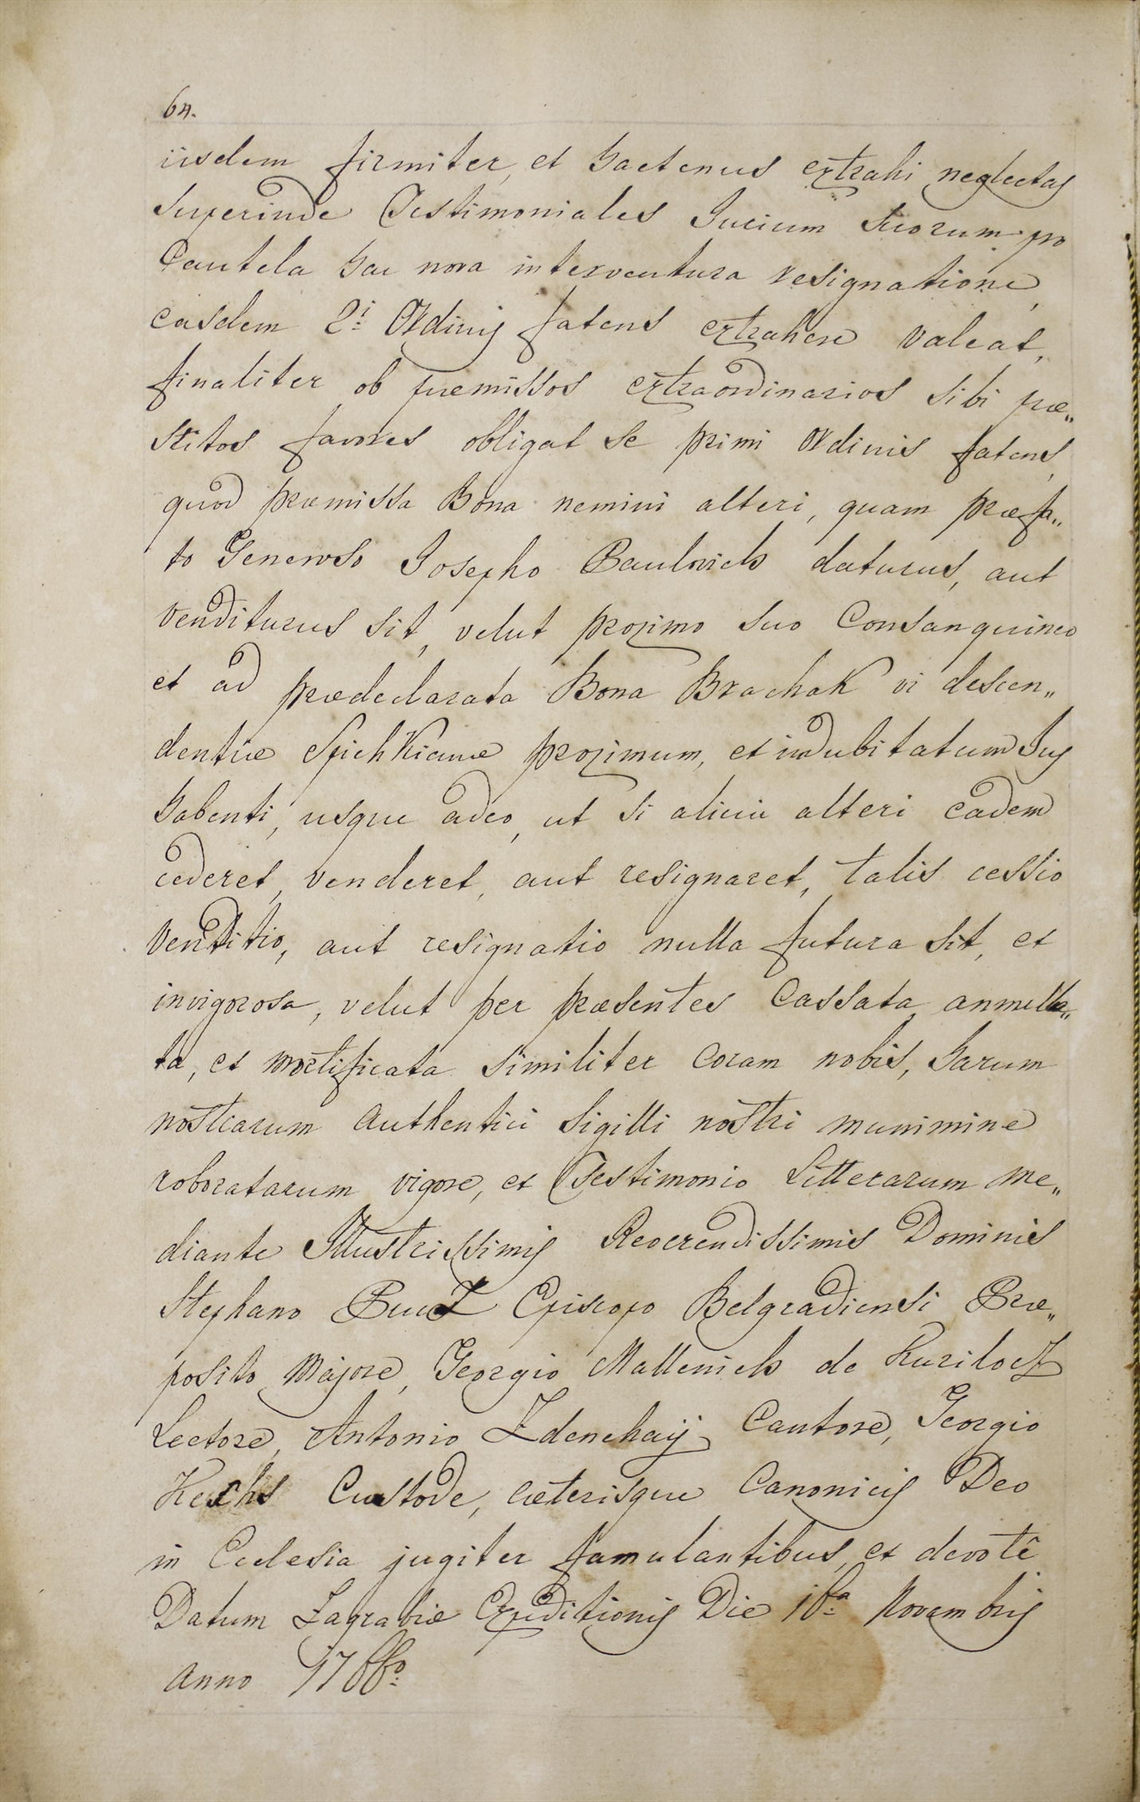 64.
iisdem firmiter, et hactenus extrahi neglectas
superinde Testimoniales Jurium suorum pro
Cautela hac nova interventura resignatione,
easdem 2i Ordinis fatens extrahere valeat,
finaliter ob præmissos extraordinarios sibi præ„
stitos favores obligat se primi Ordinis fatens,
quod præmissa Bona nemini alteri, quam præfa„
to Generoso Josepho Paulovich daturus, aut
venditurus sit, velut proximo suo Consanguineo
et ad prædeclarata Bona Brachak vi descen„
dentiæ SpichKianæ proximum, et indubitatum Jus
habenti, usque adeo, ut si alicui alteri eadem
cederet, venderet, aut resignaret, talis cessio
Venditio, aut resignatio nulla futura sit, et
invigorosa, velut per præsentes Cassata annulla„
ta, et mortificata similiter Coram nobis, harum
nostrarum authentici Sigilli nostri munimine
roboratarum vigore, et Testimonio Litterarum me„
diante Illustrissimis Reverendissimis Dominis
Stephano Pucz Episcopo Belgradiensi Præ„
posito Majore, Georgio Mallenich de Kuriloez
Lectore, Antonio Zdenchaÿ Cantore, Georgio
Custode, cæterisque Canonicis Deo
in Ecclesia jugiter famulantibus, et devotè
Datum Zagrabiæ Expeditionis Die Novembris
Anno